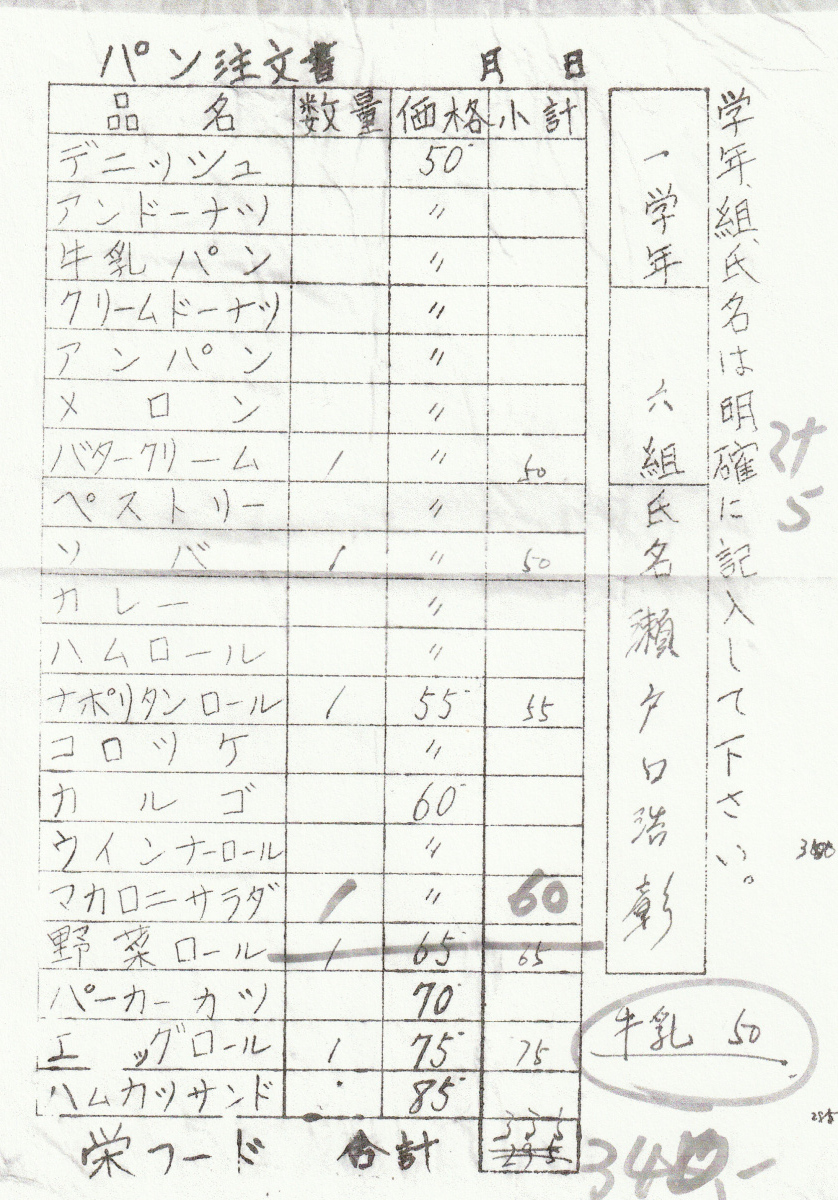 パン注文書 月 日
品名 数量 価格 小計
デニッシュ 50
アンドーナツ 〃
牛乳パン 〃
クリームドーナツ 〃
アンパン 〃
メロン 〃
バタークリーム 1 〃 50
ペストリー 〃
ソバ 1 〃 50
カレー 〃
ハムロール 〃
ナポリタンロール 1 55 55
コロツケ 〃
カルゴ 60
ウインナーロール 〃
マカロニサラダ 1 〃 60
野菜ロール 1 65 65
パーカーカツ 70
エッグロール 1 75 75
ハムカツサンド 85
栄フード 合計 335 295
学年、組、氏名は明確に記入して下さい。
一学年
六組
氏名 瀬夕口浩彰
牛乳 50